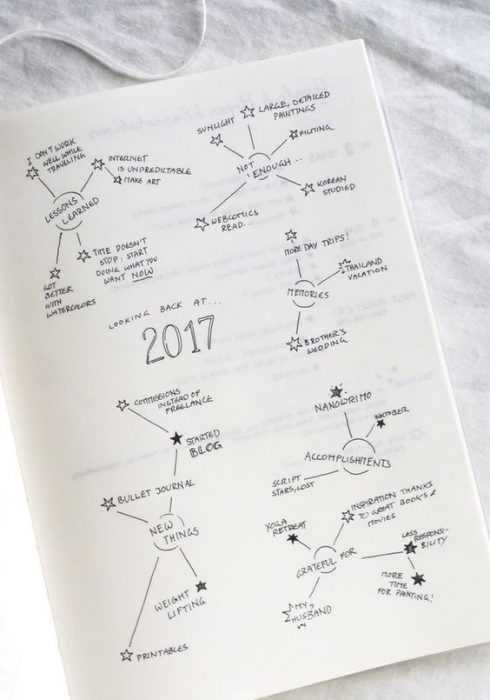 I DON'T WORK
WELL WHILE
TRAVELING
INTERNET
IS UNPREDICTABLE
MAKE ART
LESSONS
LEARNED
TIME DOESN'T
STOP; START
DOING WHAT YOU
WANT NOW
GOT
BETTER
WITH
WATERCOLORS
SUNLIGHT
LARGE, DETAILED
PAINTINGS
NOT
ENOUGH...
KOREAN
STUDIED
WEBCOMICS
READ...
MORE DAY TRIPS!
THAILAND
VACATION
MEMORIES
BROTHER'S
WEDDING
LOOKING BACK AT...
2017
COMMISSIONS
INSTEAD OF
FREELANCE
STARTED
BLOG
BULLET JOURNAL
NEW
THINGS
WEIGHT
LIFTING
PRINTABLES
NANOWRIMO
INKTOBER
ACCOMPLISHMENTS
SCRIPT
STARS, LOST
INSPIRATION THANKS
TO GREAT BOOKS &
MOVIES
YOGA
RETREAT
LESS
RESPONSI-
BILITY
GRATEFUL FOR
MORE
TIME
FOR PAINTING!
MY
HUSBAND